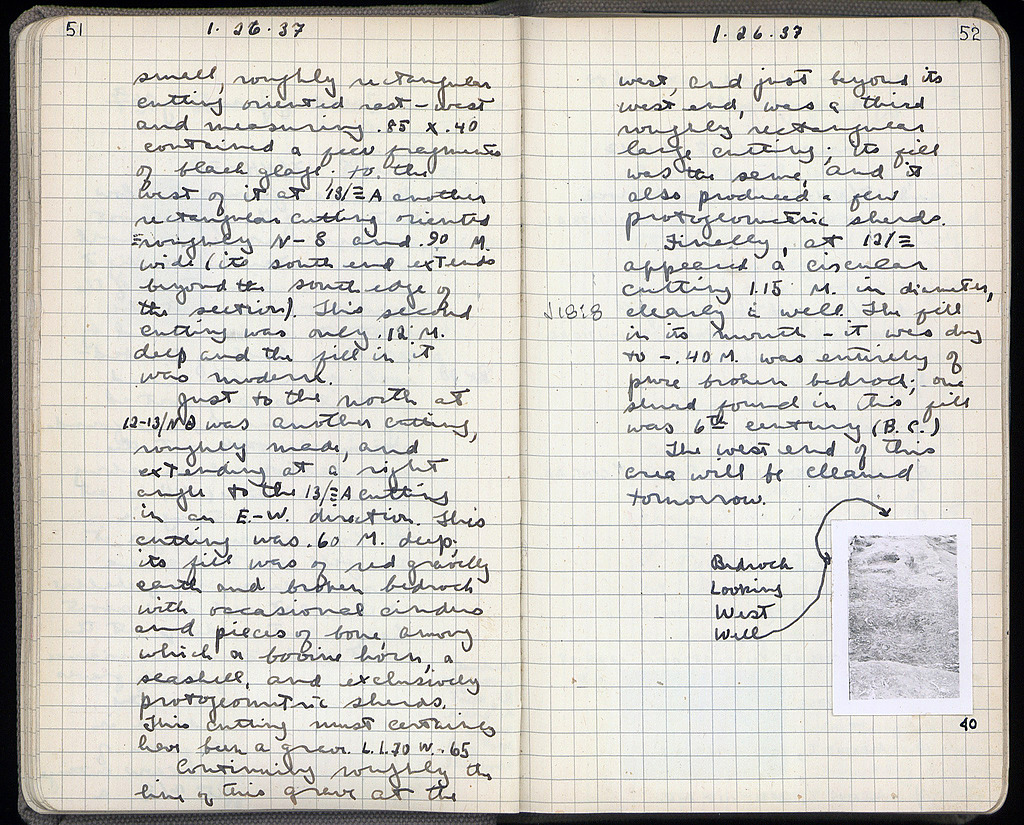 51
1.26.37
small, roughly rectangular
cutting oriented east-west
and measuring .85 x .40
contained a few fragments
of black glaze. To the
west of it at 13/Ξ A another
rectangular cutting oriented
roughly N-S and .90 M.
wide (its south end extends
beyond the south edge of
the section). This second
cutting was only .12 M.
deep and the fill in it
was modern.
Just to the north at
12-13/ was another cutting,
roughly made, and
extending at a right
angle to the 13/Ξ A cutting
in an E.-W. direction. This
cutting was .60 M. deep;
its fill was of red gravelly
earth and broken bedrock
with occasional cinders
and pieces of bone, among
which a bovine horn, a
seashell, and exclusively
protogeometric sherds.
This cutting must certainly
have been a grave. L. 1.70 W. .65
Continuing roughly the
line of this grave at the
52
1.26.37
west, and just beyond its
west end, was a third
roughly rectangular
large cutting; its fill
was the same, and it
also produced a few
protogeometric sherds.
Finally, at 12/Ξ
appeared a circular
cutting 1.15 M. in diameter,
clearly a well. The fill
in its mouth - it was dug
to -.40 M. was entirely of
pure broken bedrock; one
sherd found in this fill
was 6th century (B.C.)
The west end of this
area will be cleaned
tomorrow.
Bedrock
Looking
West
Well
40